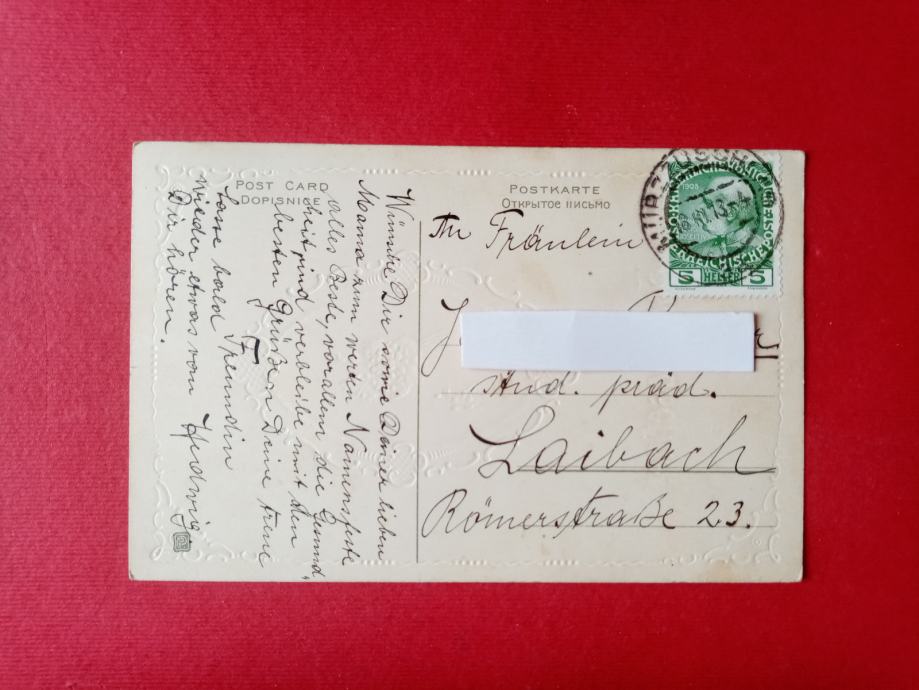 POST CARD
DOPISNICE
POSTKARTE
ОТКРЫТОЕ ПИСЬМО
Wünsche Dir sowie Deiner lieben
Mama zum werten Namensfeste
alles Beste, vor allem die Gesund„
heit und verbleibe mit den
besten Grüßen Deine treue
Freundin
Hedwig
Lasse bald
wieder etwas von
Dir hören.
An Fräulein
stud. präd.
Laibach
Römerstraße 23.
1908
5 HELLER 5